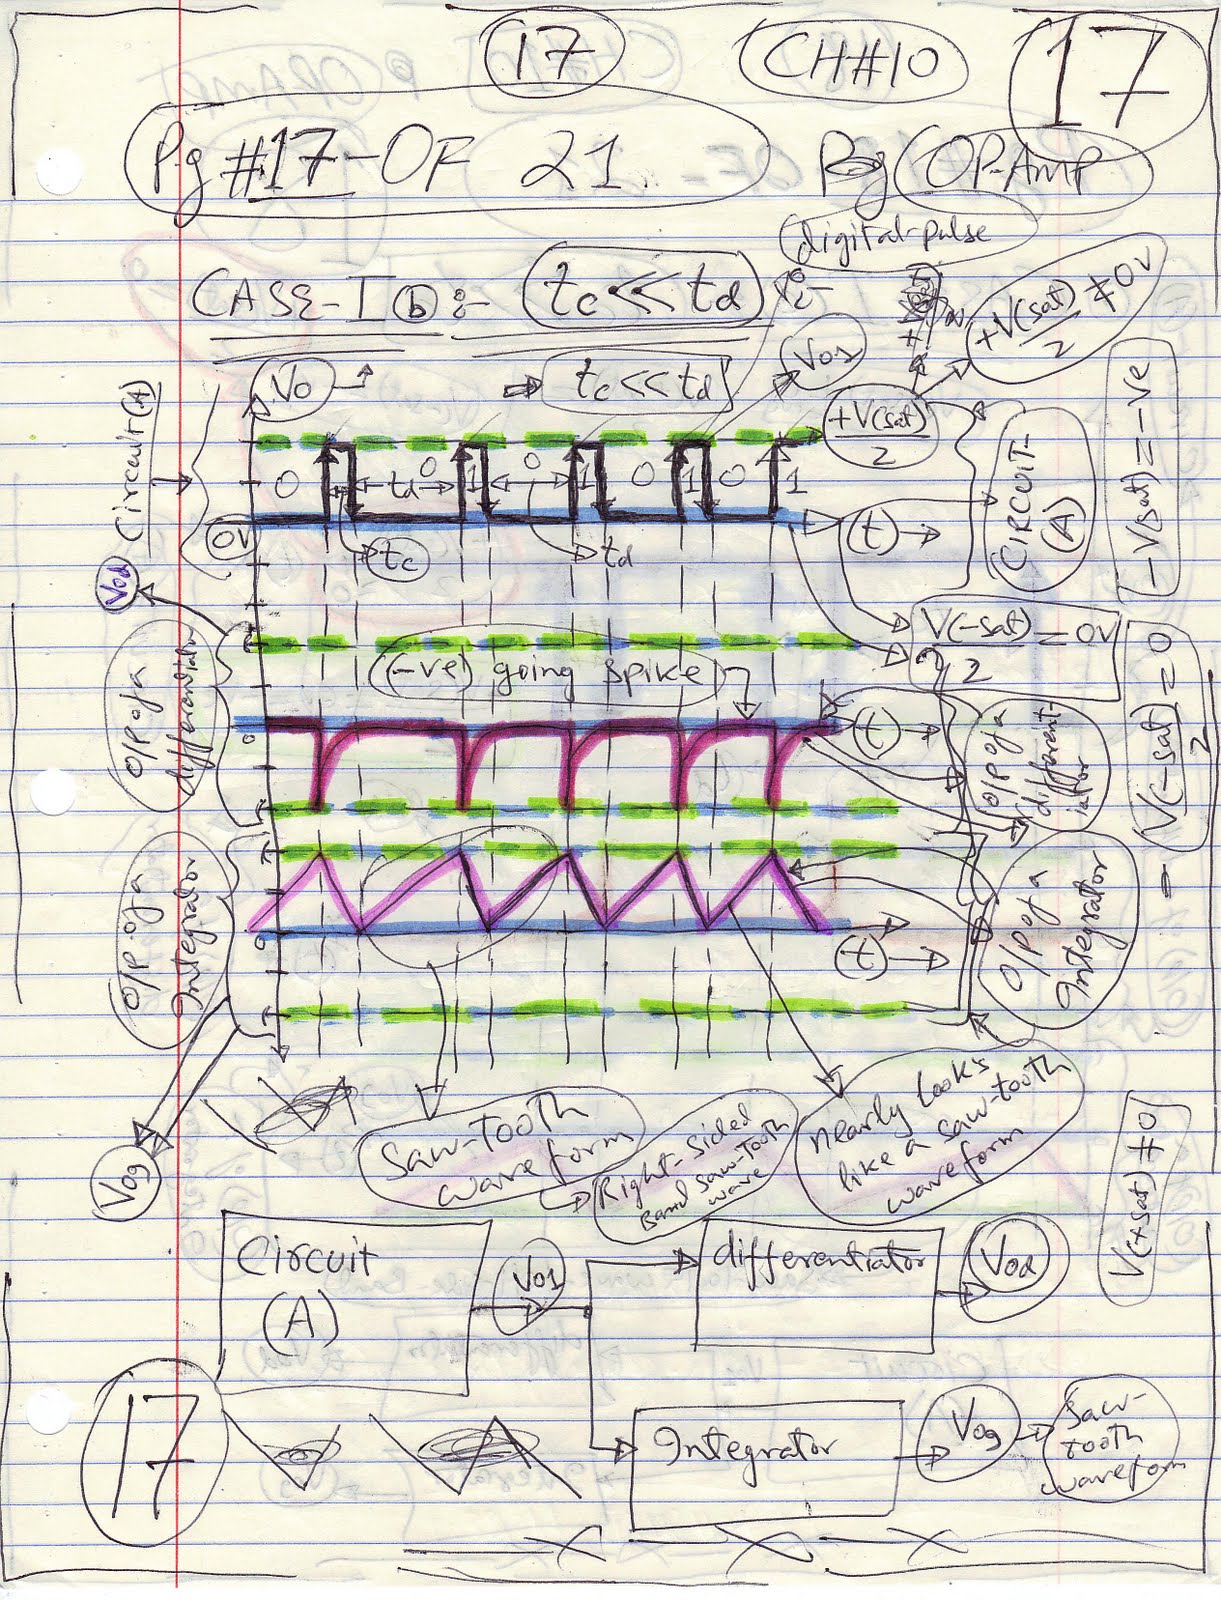 17
CH#10
17
Pg #17-OF 21
Pg OP-Amp
digital-pulse
CASE-I (b):- tc << td
+V(sat)/2 ≠ 0V
Vo
tc << td
Vo1
+V(sat)/2
Circuit(A)
0 td 0 1 0 1 0 1 0 1
0V
(t)
CIRCUIT-(A)
-V(sat) = -ve
tc
td
Vod
V(-sat)/2 = 0V
(-ve) going spike
O/P of a differentiator
0
(t)
O/P of a different-
iator
- V(-sat)/2 = 0
O/P of a Integrator
0
(t)
O/P of a Integrator
Saw-Tooth
waveform
Right-Sided
Band saw-Tooth
wave
nearly Looks
like a saw-tooth
waveform
V(+sat) ≠ 0
Vog
Circuit
(A)
Vo1
differentiator
Vod
17
Integrator
Vog
Saw-
tooth
waveform